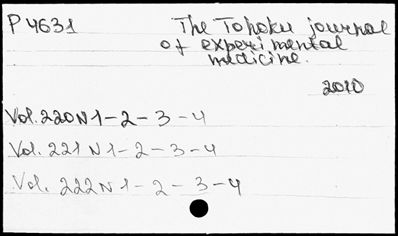 P 4631
The Tohoku journal
of experimental
medicine.
2010
Vol. 220 N 1 - 2 - 3 - 4
Vol. 221 N 1 - 2 - 3 - 4
Vol. 222 N 1 - 2 - 3 - 4